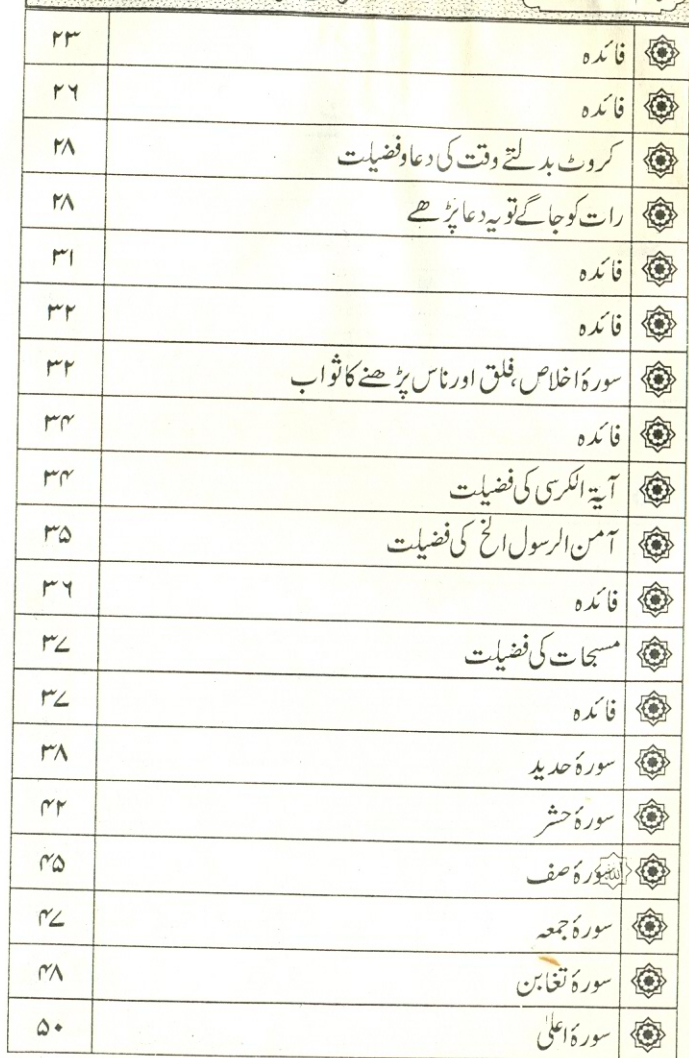 فائدہ ۲۳
فائدہ ۲۶
کروٹ بدلتے وقت کی دعا و فضیلت ۲۸
رات کو جاگے تو یہ دعا پڑھے ۲۸
فائدہ ۳۱
فائدہ ۳۲
سورۂ اخلاص، فلق اور ناس پڑھنے کا ثواب ۳۲
فائدہ ۳۴
آیۃ الکرسی کی فضیلت ۳۴
آمن الرسول الخ کی فضیلت ۳۵
فائدہ ۳۶
مسبحات کی فضیلت ۳۷
فائدہ ۳۷
سورۂ حدید ۳۸
سورۂ حشر ۴۲
سورۂ صف ۴۵
سورۂ جمعہ ۴۷
سورۂ تغابن ۴۸
سورۂ اعلیٰ ۵۰